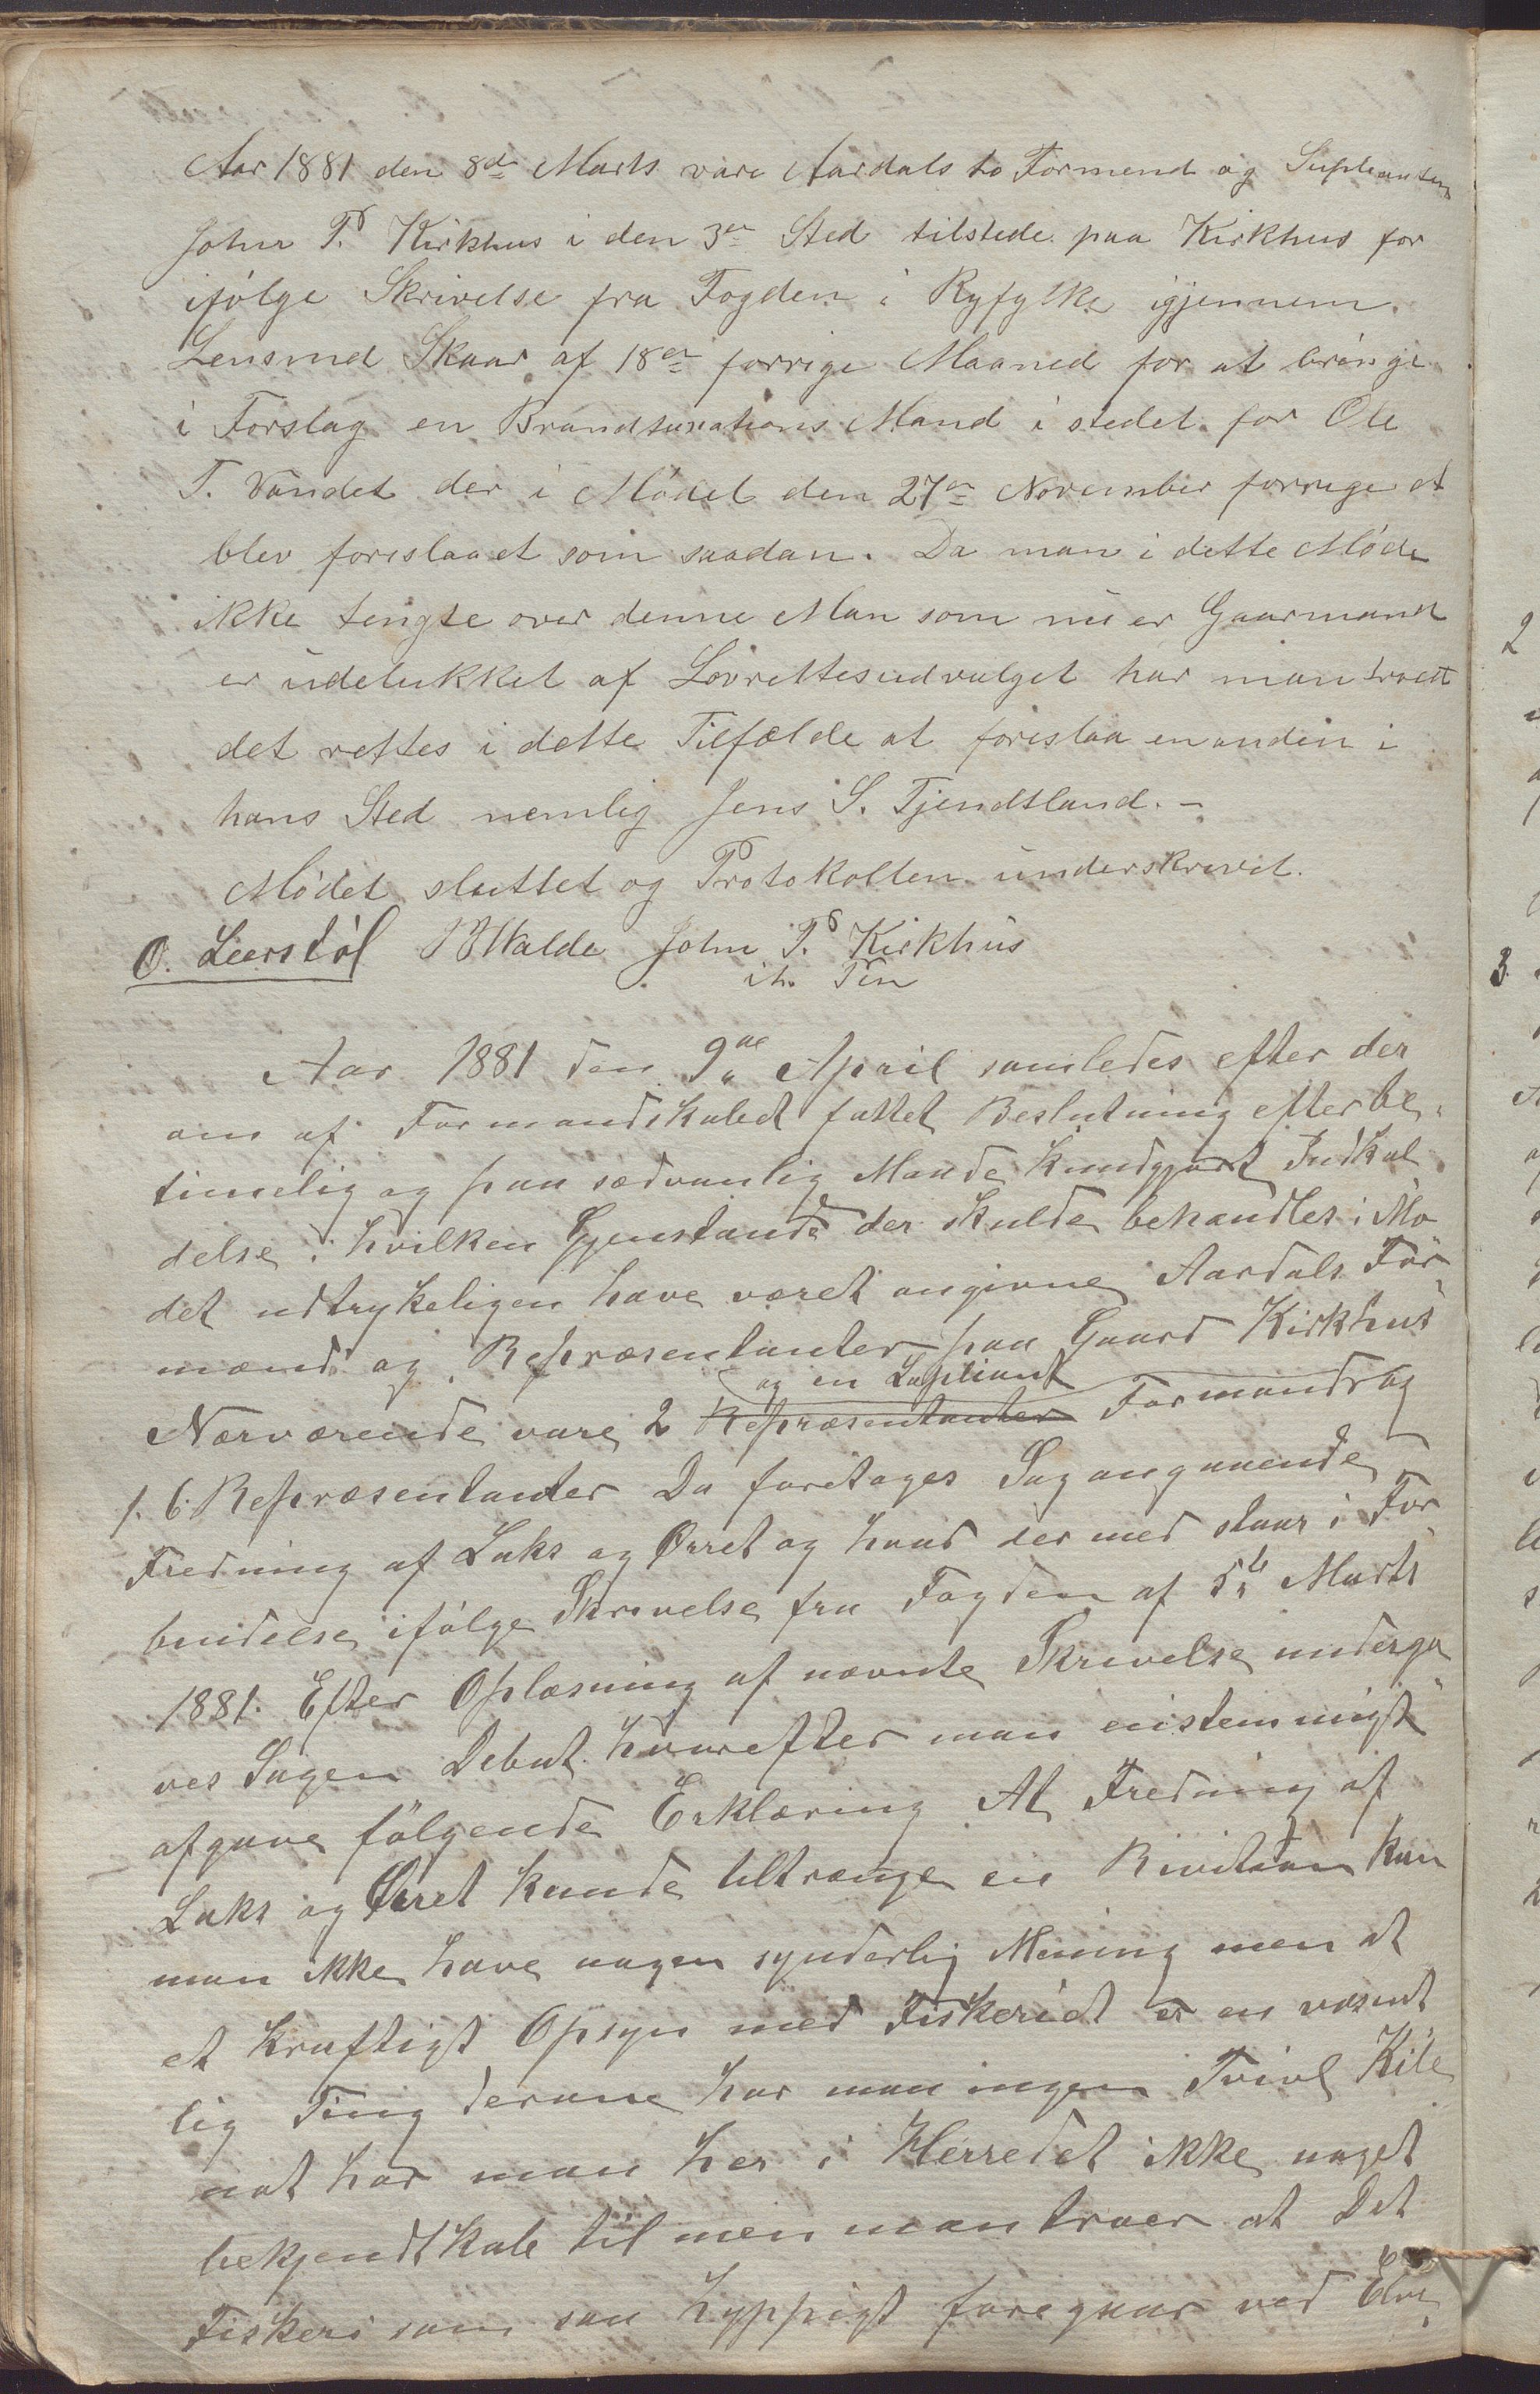 Aar 1881 den 8de Marts vare Aardals to Formend og Supleanten
John P. Kirkhus i den 3die Sted tilstede paa Kirkhus for
ifølge Skrivelse fra Fogden i Ryfylke igjennem
Lensmd Skaar af 18de forrige Maaned for at bringe
i Forslag en Brandtaxations Mand i stedet for Ole
T. Vandet der i Mødet den 27de November forrige
blev foreslaaet som saadan. Da man i dette Møde
ikke tengte over denne Man som nu er Gaarmand
er udelukket af Lovrettesudvalget har man troett
det rettes i dette Tilfælde at foreslaa en anden i
hans Sted nemlig Jens S. Tjendtland. -
Mødet sluttet og Protokollen underskrevet.
O. Leerstøl Walde John P. Kirkhus
Aar 1881 den 9de April samledes efter der
om af Formandskabet fattet Beslutning efter be-
timelig og paa sædvanlig Maade kundgjort Indkal
delse i hvilken Gjenstande der skulde behandles i Mø
det udtrykeligen have været angivne Aardals For
mænd og Repræsentanter paa Gaard Kirkhus
og en Supliant
Nærværende vare 2 Repræsentanter Formænd og
1. 6 Repræsentanter Da foretages Sag angaaende
Fredning af Laks og Ørret og hvad der med staar i For
bindelse ifølge Skrivelse fra Fogden af 5te Marts
1881. Efter Oplæsning af nævnte Skrivelse underga
ves Sagen Debat hvorefter man enstemmigt
afgave følgende Erklæring At Fredning af
Laks og Ørret kunde tiltrænge en kan
man ikke have nogen synderlig Mening men at
et kraftigt Opsyn med Fiskeriet er en væsent
lig Ting derom har man ingen Tvivl Kile
not har man her i Herredet ikke noget
bekjendtskab til men man troer at Det
Fiskeri som saa hyppigt foregaar ved Elve
2
3.